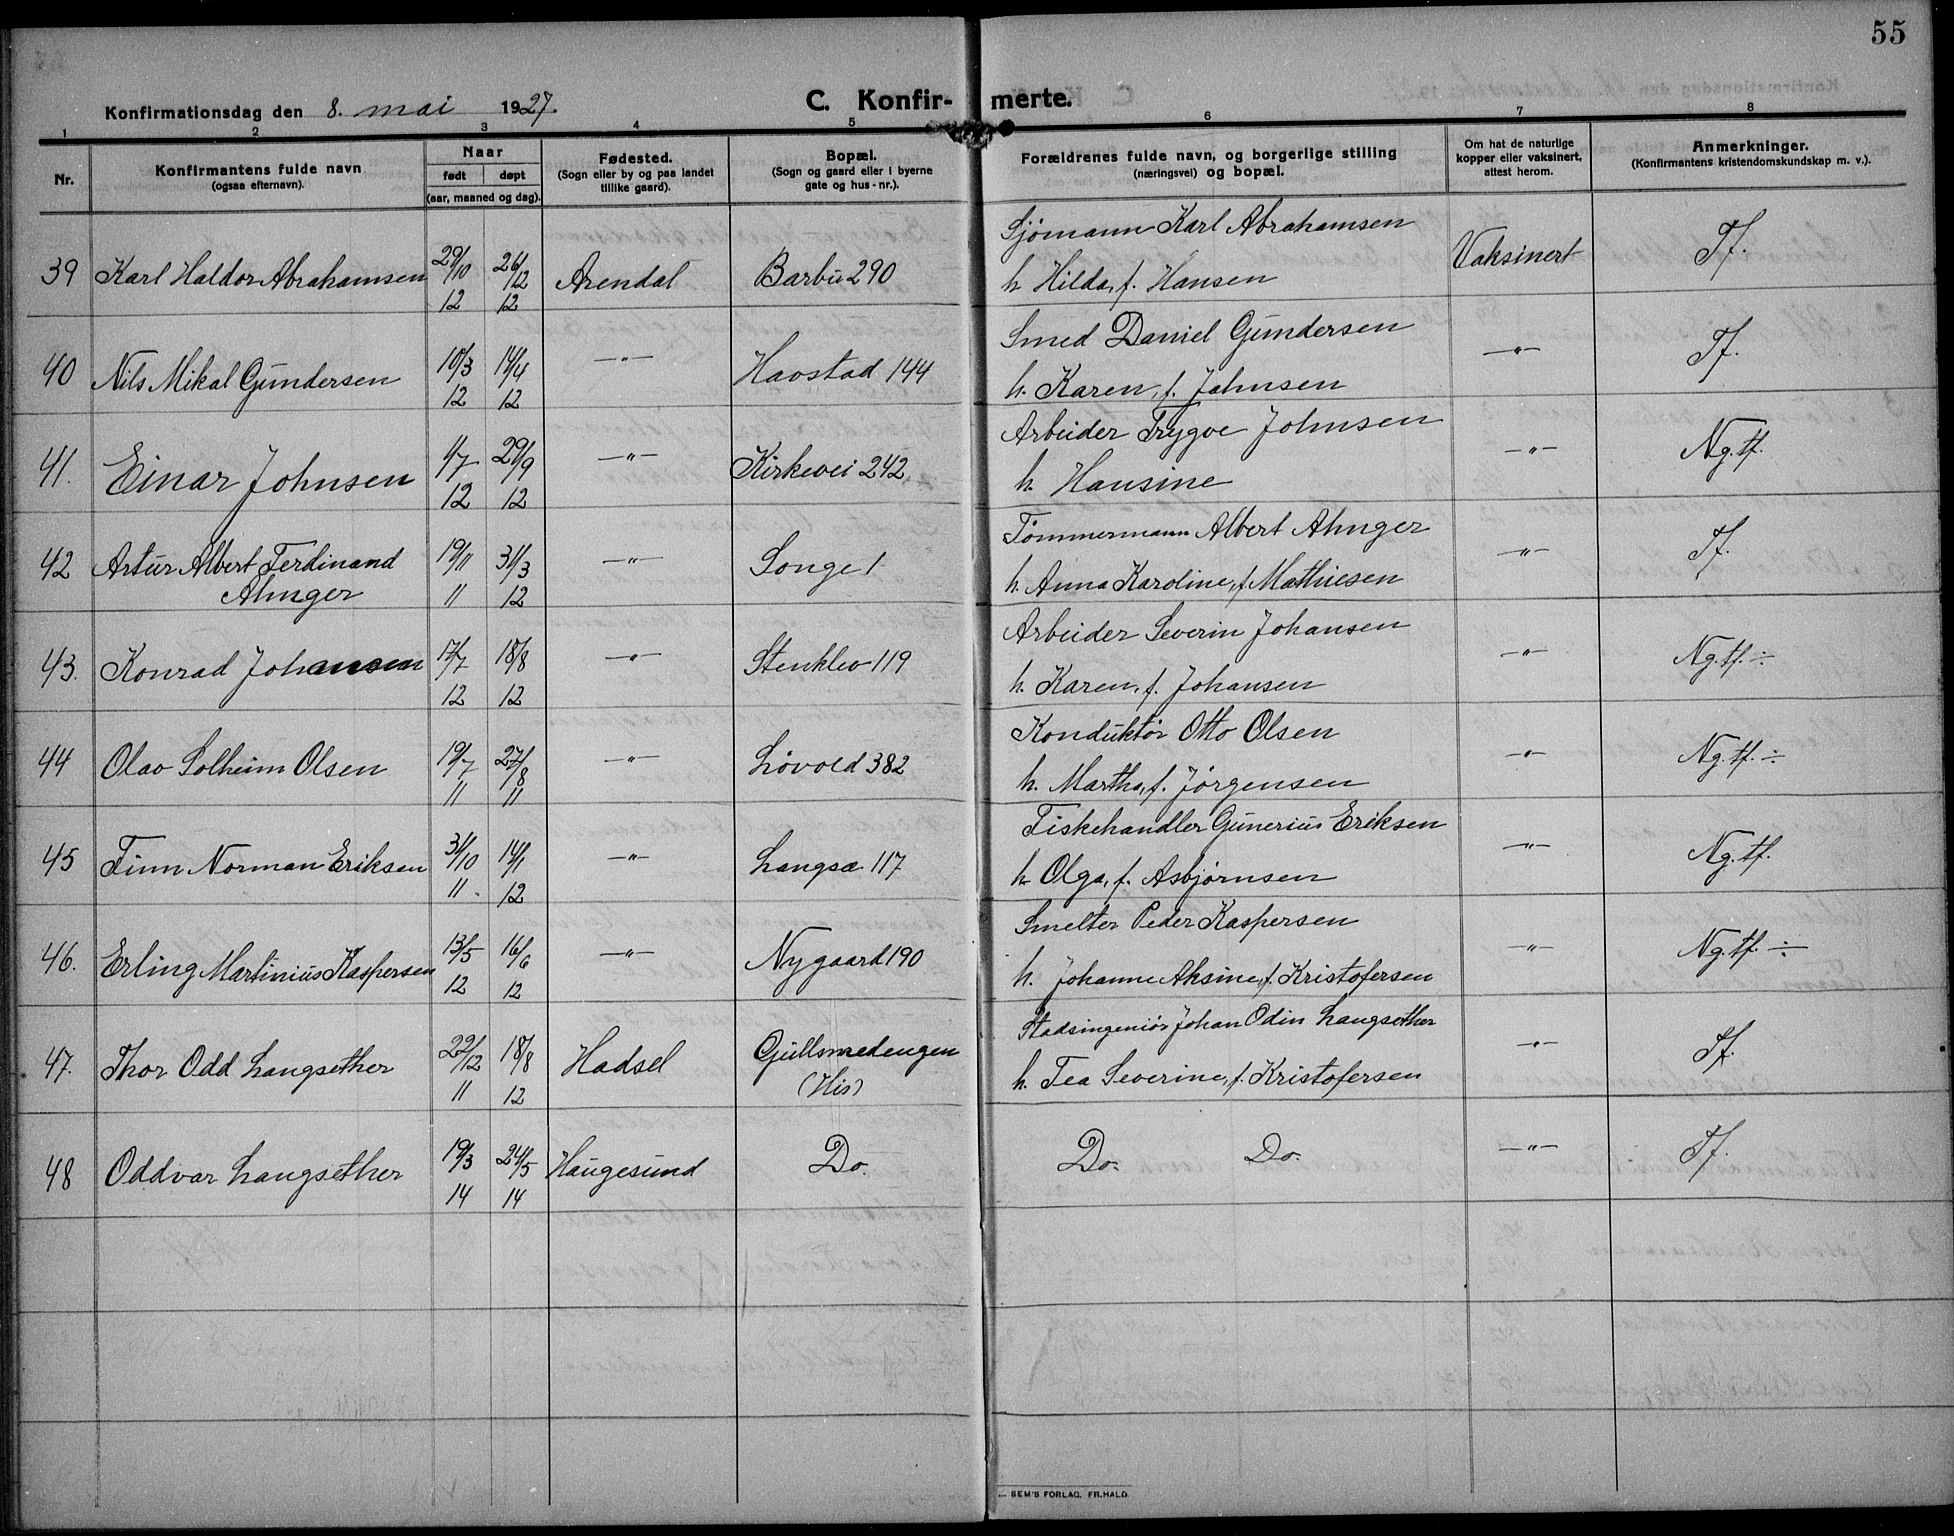 55
Konfirmationsdag den 8. mai 1927.
C. Konfir- merte.
1 2 3 4 5 6 7 8
Nr.
Konfirmantens fulde navn
(ogsaa efternavn).
Naar
født døpt
(aar, maaned og dag).
Fødested.
(Sogn eller by og paa landet
tillike gaard).
Bopæl.
(Sogn og gaard eller i byerne
gate og hus-nr.).
Forældrenes fulde navn, og borgerlige stilling
(næringsvei) og bopæl.
Om hat de naturlige
kopper eller vaksinert,
attest herom.
Anmerkninger.
(Konfirmantens kristendomskundskap m. v.).
Sjømann Karl Abrahamsen
39 Karl Haldor Abrahamsen 29/10 26/12 Arendal Barbu 290 h. Hilda, f. Hansen Vaksinert Tf.
12 12
Smed Daniel Gundersen
40 Nils Mikal Gundersen 10/3 14/4 —"— Havstad 144 h. Karen, f. Jahnsen —"— Tf.
12 12
Arbeider Trygve Johnsen
41. Einar Johnsen 1/7 29/9 —"— Kirkevei 242 h. Hansine —"— Ng. tf.
12 12
Tømmermann Albert Ahnger
42 Artur Albert Ferdinand 19/11 31/3 —"— Songe 1 h. Anna Karoline, f. Mathiesen —"— Tf.
Ahnger 11 12
Arbeider Severin Johansen
43. Konrad Johansen 17/7 18/8 —"— Stenklev 119 h. Karen, f. Johansen —"— Ng. tf. ÷
12 12
Konduktør Otto Olsen
44 Olav Solheim Olsen 19/7 27/8 —"— Løvold 382 h. Martha, f. Jørgensen —"— Ng. tf. ÷
11 11
Fiskehandler Gunerius Eriksen
45 Finn Norman Eriksen 31/10 14/1 —"— Langsæ 117 h. Olga, f. Asbjørnsen —"— Ng. tf.
11 12
Smelter Peder Kaspersen
46. Erling Martinius Kaspersen 13/5 16/6 —"— Nygaard 190 h. Johanne Aksine, f. Kristofersen —"— Ng. tf. ÷
12 12
Stadsingeniør Johan Odin Langsether
47. Thor Odd Langsether 29/12 18/8 Hadsel Gullsmedengen h. Tea Severine, f. Kristofersen —"— Tf.
11 12 (His)
48 Oddvar Langsether 19/3 24/5 Haugesund Do. Do. Do. —"— Tf.
14 14
SEM'S FORLAG, FR.HALD